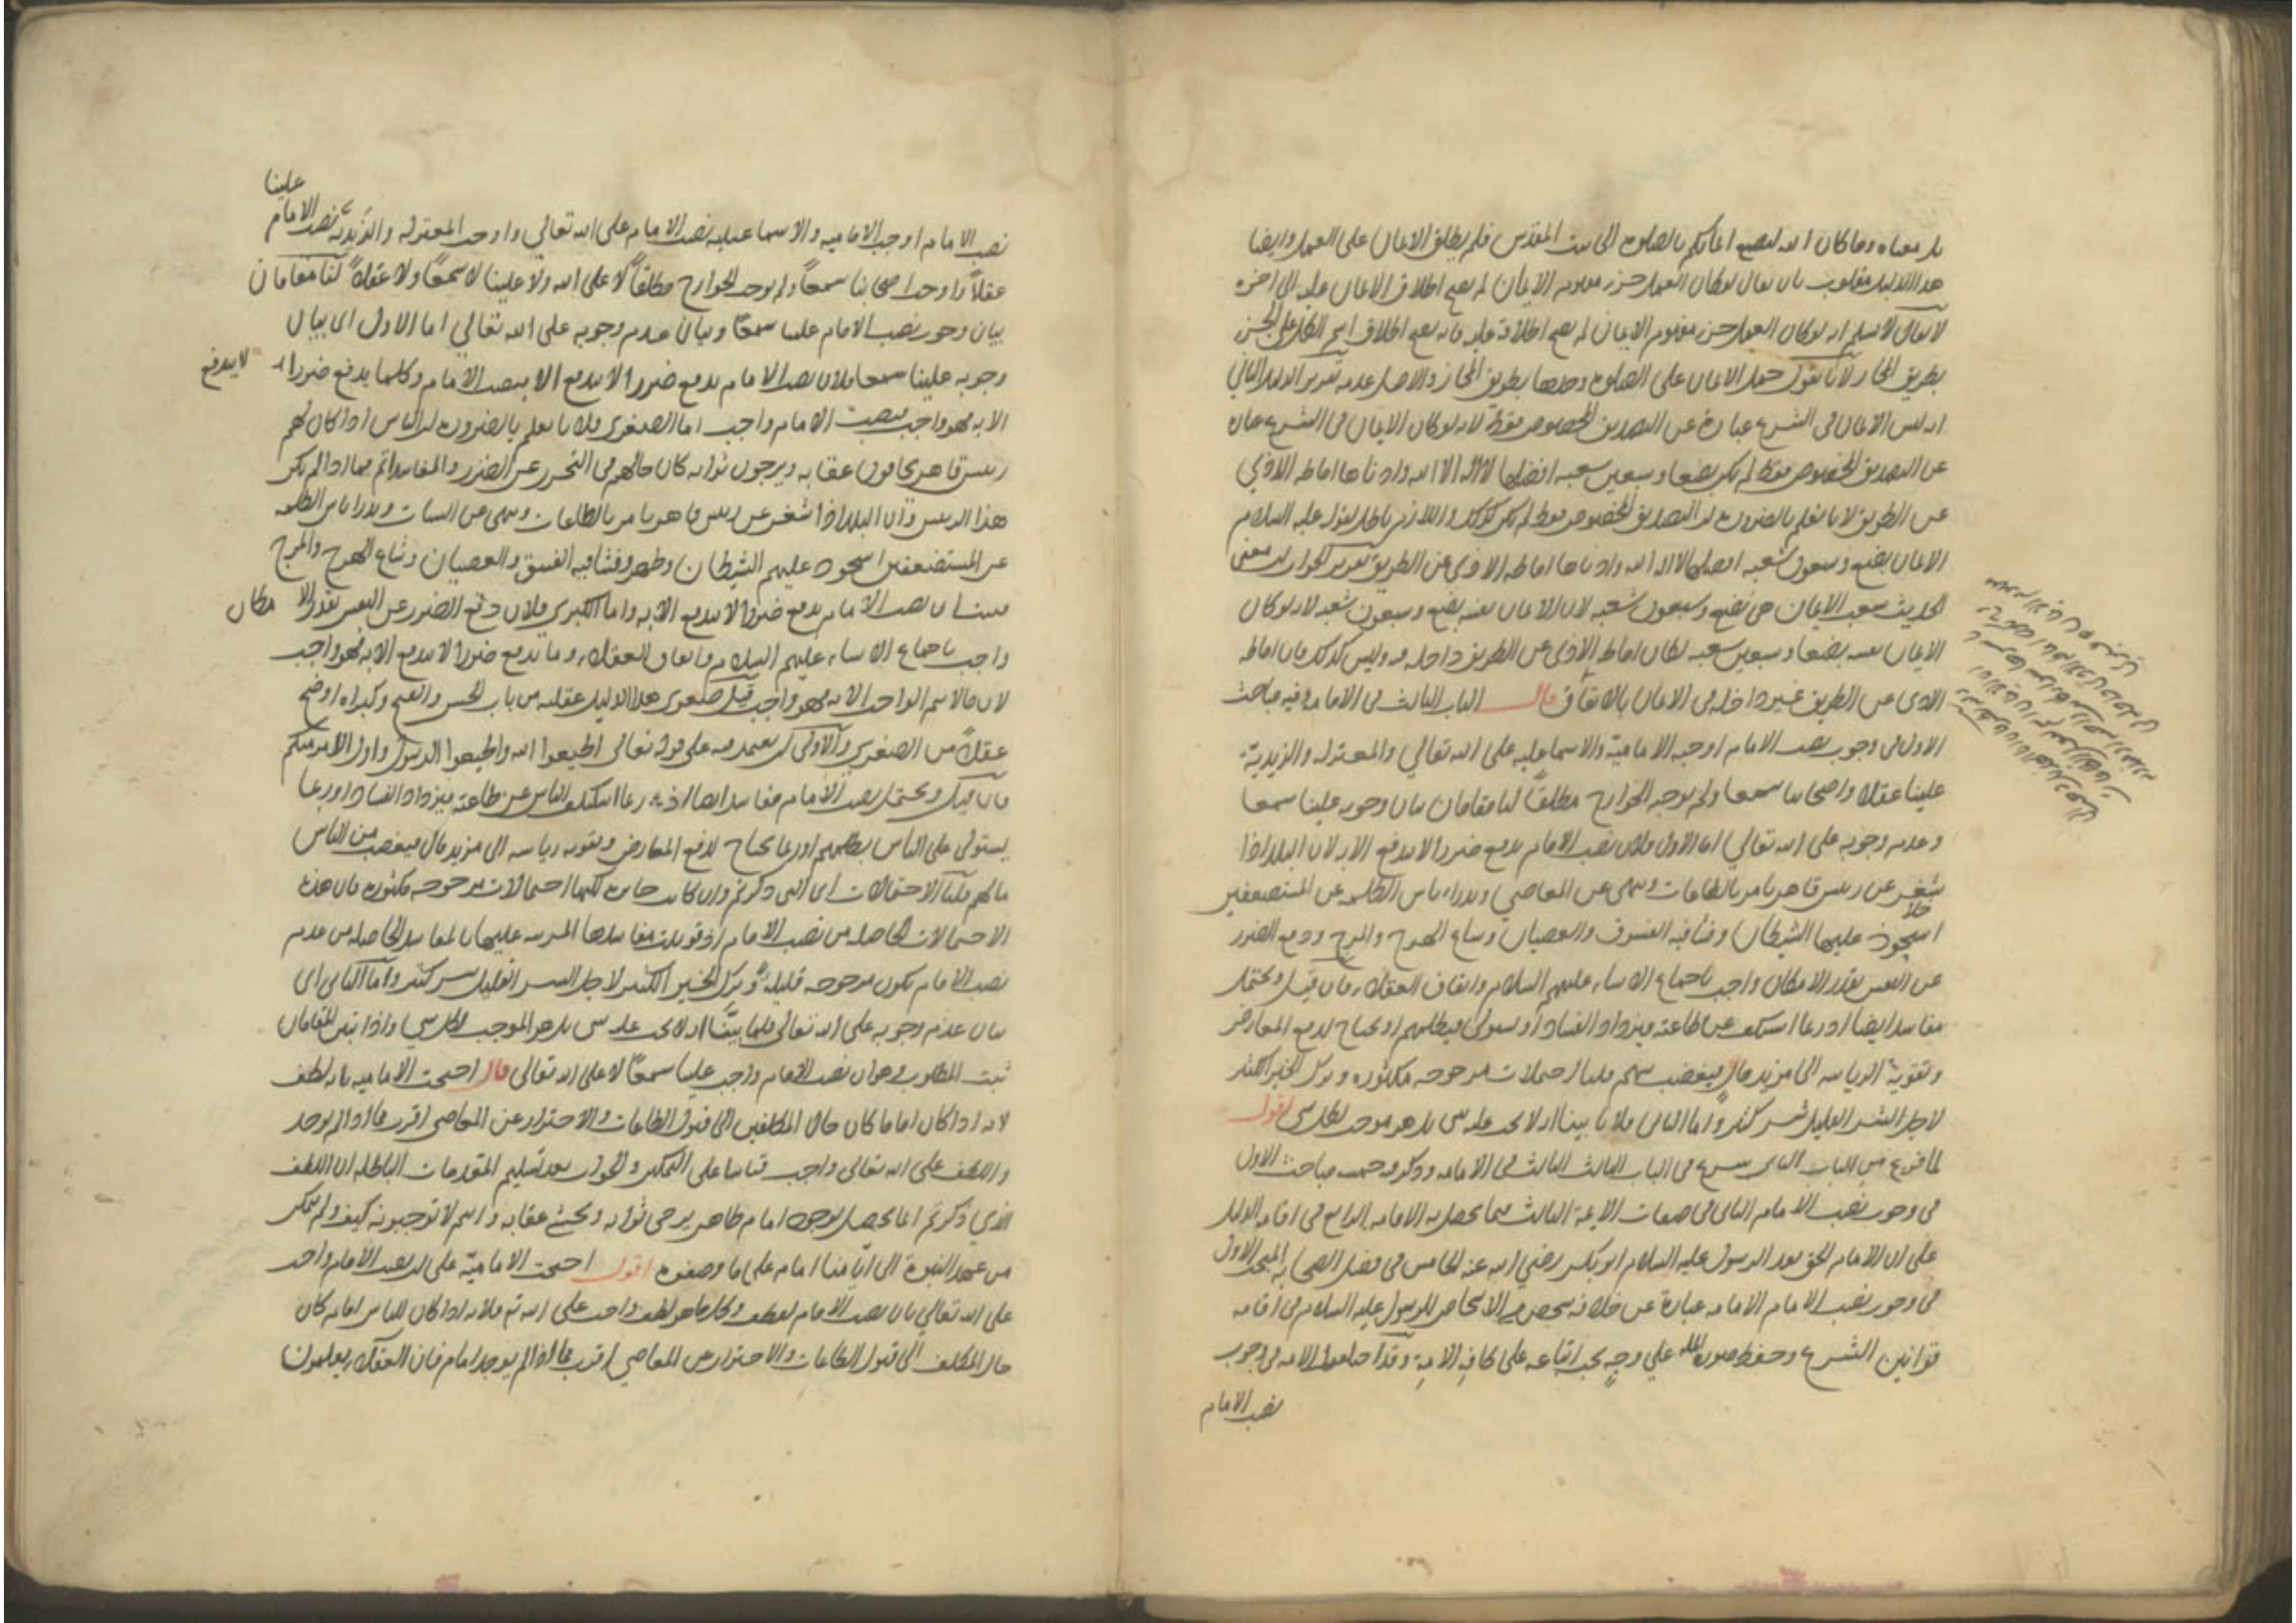 بل معناه وما كان الله ليضيع ايمانكم بالصلوة الى بيت المقدس فلم يطلق الايمان على العمل وايضا
هذا الدليل مقلوب بان يقال لو كان العمل جزء مفهوم الايمان لم يصح اطلاق الايمان عليه الى اخره
لا يقال لا نسلم انه لو كان العمل جزء مفهوم الايمان لم يصح اطلاقه عليه فانه يصح اطلاق اسم الكل على الجزء
بطريق المجاز لانا نقول حمل الايمان على الصلوة وحدها بطريق المجاز والاصل عدمه تقرير الدليل الثاني
انه ليس الايمان في الشرع عبارة عن التصديق المخصوص فقط لانه لو كان الايمان في الشرع عبارة
عن التصديق المخصوص فقط لم يكن بضعا وسبعين شعبه افضلها لا اله الا الله وادناها اماطة الاذى
عن الطريق لانا نعلم بالضرورة ان التصديق المخصوص فقط لم يكن كذلك واللازم باطل لقوله عليه السلام
الايمان بضع وسبعون شعبه افضلها لا اله الا الله وادناها اماطة الاذى عن الطريق تقرير الجواب ان معنى
الحديث شعب الايمان هي بضع وسبعون شعبه لان الايمان نفسه بضع وسبعون شعبه لانه لو كان
الايمان نفسه بضعا وسبعين شعبه لكان اماطة الاذى عن الطريق داخله فيه وليس كذلك فان اماطة
الاذى عن الطريق غير داخله في الايمان بالاتفاق قال الباب الثالث في الامامة وفيه مباحث
الاول في وجوب نصب الامام اوجبه الامامية والاسماعيليه على الله تعالي والمعتزله والزيدية
علينا عقلا واصحابنا سمعا ولم يوجبه الخوارج مطلقا لنا مقامان بيان وجوبه علينا سمعا
وعدم وجوبه على الله تعالي اما الاول فلان نصب الامام يدفع ضررا لا يندفع الا به لان البلد اذا
شغر عن رئيس قاهر يامر بالطاعات وينهى عن المعاصي ويدراء باس الظلمه عن المستضعفين
استحوذ عليها الشيطان وفشا فيه الفسوق والعصيان وشاع الهرج والمرج ودفع الضرر
عن النفس بقدر الامكان واجب باجماع الانبياء عليهم السلام واتفاق العقلاء فان قيل ويحتمل
مفاسد ايضا اذ ربما استنكف عن طاعته فيزداد الفساد او يستولي فيظلمهم او يحتاج لدفع المعارض
وتقوية الرياسه الى مزيد مال فيغصب منهم قلنا احتمالات مرجوحه مكثوره وترك الخير الكثير
لاجل الشر القليل شر كثير واما الثاني فلانا بينا انه لا يجب عليه شي بل هو موجب لكل شي اقول
لما فرغ من الباب الثاني شرع في الباب الثالث في الامامه وذكر فيه خمسة مباحث الاول
في وجوب نصب الامام الثاني في صفات الايمة الثالث فيما يحصل به الامامه الرابع في اقامة الدليل
على ان الامام الحق بعد الرسول عليه السلام ابو بكر رضي الله عنه الخامس في فضل الصحابه المبحث الاول
في وجوب نصب الامام الامامه عبارة عن خلافة شخص من الاشخاص للرسول عليه السلام في اقامة
قوانين الشرع وحفظ حوزة الملة على وجه يجب اتباعه على كافة الامة وقد اختلفوا الامه في وجوب
نصب الامام
علينا
نصب الامام اوجب الاماميه والاسماعيليه نصب الامام على الله تعالي واوجب المعتزله والزيدية نصب الامام
عقلا واوجب اصحابنا سمعا ولم يوجب الخوارج مطلقا لا على الله ولا علينا لا سمعا ولا عقلا لنا مقامان
بيان وجوب نصب الامام علينا سمعا وبيان عدم وجوبه على الله تعالي اما الاول اى بيان
وجوبه علينا سمعا فلان نصب الامام يدفع ضررا لا يندفع الا بنصب الامام وكلما يدفع ضررا لا يندفع
الا به فهو واجب فنصب الامام واجب اما الصغرى فلانا نعلم بالضرورة ان الناس اذا كان لهم
رئيس قاهر يخافون عقابه ويرجون ثوابه كان حالهم في التحرز عن الضرر والمفاسد اتم مما اذا لم يكن
هذا الرئيس وان البلد اذا شغر عن رئيس قاهر يامر بالطاعات وينهى عن السيئات ويدرا باس الظلمه
عن المستضعفين استحوذ عليهم الشيطان وظهر وفشا فيه الفسق والعصيان وشاع الهرج والمرج
فثبت ان نصب الامام يدفع ضررا لا يندفع الا به واما الكبرى فلان دفع الضرر عن النفس بقدر الامكان
واجب باجماع الانبياء عليهم السلام واتفاق العقلاء وما يدفع ضررا لا يندفع الا به فهو واجب
لان ما لا يتم الواجب الا به فهو واجب قيل صغرى هذا الدليل عقليه من باب الحسن والقبح وكبراه اوضح
عقلا من الصغرى والاولى ان يعتمد فيه على قوله تعالى اطيعوا الله واطيعوا الرسول واولي الامر منكم
فان قيل ويحتمل نصب الامام مفاسد ايضا اذ ربما استنكف الناس عن طاعته فيزداد الفساد او ربما
يستولى على الناس يظلمهم او ربما يحتاج لدفع المعارض وتقويه رياسه الى مزيد مال فيغصب من الناس
مالهم قلنا الاحتمالات اى التى ذكرتم وان كانت جايزه لكنها احتمالات مرجوحه مكثوره فان هذه
الاحتمالات الحاصله من نصب الامام اذ قوبلت مفاسدها المترتبه عليها بالمفاسد الحاصله من عدم
نصب الامام تكون مرجوحه قليلة وترك الخير الكثير لاجل الشر القليل شر كثير واما الثانى اى
بيان عدم وجوبه على الله تعالى فلما بينا انه لا يجب عليه شى بل هو الموجب لكل شي واذا تبين المقامان
ثبت المطلوب وهو ان نصب الامام واجب علينا سمعا لا على الله تعالى قال احتجت الاماميه بانه لطف
لانه اذا كان اماما كان حال المكلفين الى قبول الطاعات والاحتراز عن المعاصى اقرب مما اذا لم يوجد
واللطف على الله تعالى واجب قياسا على التمكين والجواب بعد تسليم المقدمات الباطله ان اللطف
الذي ذكرتم انما يحصل بوجود امام ظاهر يرجى ثوابه ويخشى عقابه وانتم لا توجبونه كيف ولم يتمكن
من عهد النبوة الى ايامنا امام على ما وصفوه اقول احتجت الامامية على ان نصب الامام واجب
على الله تعالي بان نصب الامام لطف وكل ما هو لطف واجب على الله ثم فلانه اذا كان للناس امام كان
حال المكلف الى قبول الطاعات والاحتراز عن المعاصي اقرب مما اذا لم يوجد امام فان العقلاء يعلمون